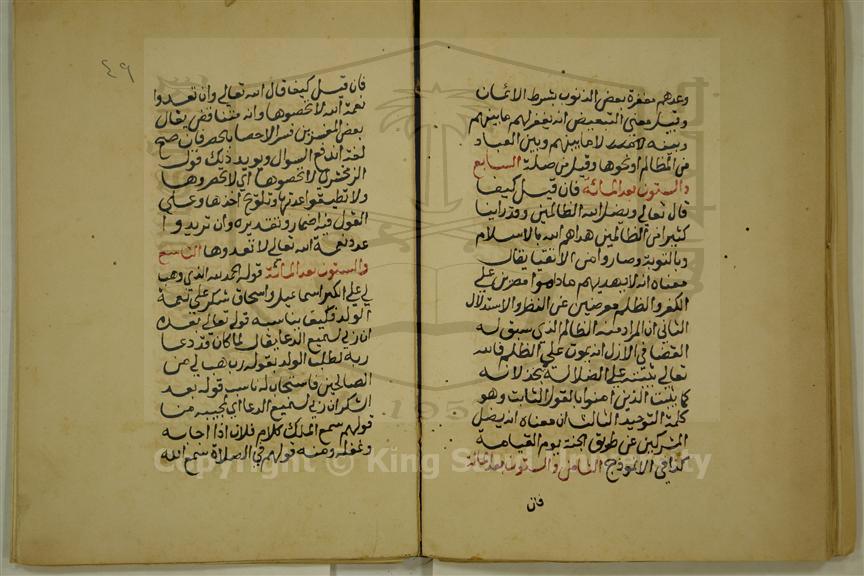 وعدهم مغفرة بعض الذنوب بشرط الايمان
وقيل معنى التبعيض انه يغفر لهم ما بينهم
وبينه لا ما بينهم وبين العباد
من المظالم او نحوها وقيل من صلة السابع
والستون بعد المائة فان قيل كيف
قال تعالى ويضل الله الظالمين وقد راينا
كثيرا من الظالمين هداهم الله بالاسلام
وبالتوبة وصاروا من الاتقيا يقال
معناه انه لا يهديهم ما داموا مصرين على
الكفر والظلم معرضين عن النظر والاستدلال
الثاني ان المراد منه الظالم الذي سبق له
القضا في الازل انه يموت على الظلم فالله
تعالى يثبته على الضلالة بخذلانه
كما يثبت الذين امنوا بالقول الثابت وهو
كلمة التوحيد الثالث ان معناه انه يضل
المشركين عن طريق الجنة يوم القيامة
كذا في الانموذج الثامن والستون بعد المائة
فان
٤٩
فان قيل كيف قال الله تعالى وان تعدوا
نعمة الله لا تحصوها وانه متناقض يقال
بعض المفسرين فسر الاحصا بالحصر فان صح
لغة اندفع السوال ويويد ذلك قول
الزمخشري لا تحصوها اي لا تحصروها
ولا تطيقوا عدها وبلوغ اخرها وعلى
القول فيه اضمار وتقديره وان تريدوا
عد نعمة الله تعالى لا تعدوها التاسع
والستون بعد المائة قوله الحمد لله الذي وهب
لي على الكبر اسماعيل واسحاق شكر على نعمة
الولد فكيف يناسبه قوله تعالى بعده
ان ربي لسميع الدعا يقال لما كان قد دعا
ربه لطلب الولد بقوله رب هب لي من
الصالحين فاستجاب له ناسب قوله بعد
الشكر ان ربي لسميع الدعا اي لمجيبه من
قولهم سمع الملك كلام فلان اذا اجابه
ومنه قولهم في الصلاة سمع الله
Copyright © King Saud University
195